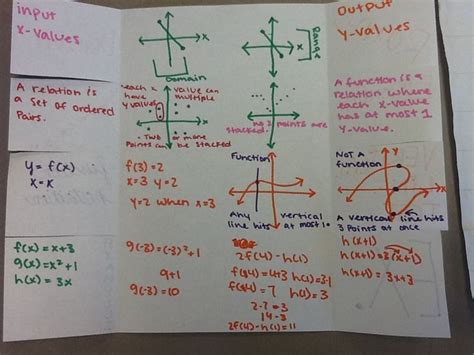 input
x-values
x
Domain
x
Range
Output
y-values
A relation is
a set of ordered
Pairs.
each x value can
have multiple
y values
- Two or more
Points can be stacked
no 2 points are
stacked.
A function is a
relation where
each x-value
has at most 1
y-value.
y = f(x)
x = x
f(3) = 2
x=3 y=2
y=2 when x=3
Function
Any vertical
line hits at most 1
NOT A
function
x
A vertical line hits
3 Points at once
f(x) = x+3
g(x) = x²+1
h(x) = 3x
g(-3) = (-3)²+1
9+1
g(-3) = 10
2f(4) - h(1)
f(4) = 4+3 h(1) = 3·1
f(4) = 7 h(1) = 3
2·7 - 3
14 - 3
2f(4) - h(1) = 11
h(x+1)
h(x+1) = 3(x+1)
h(x+1) = 3x+3